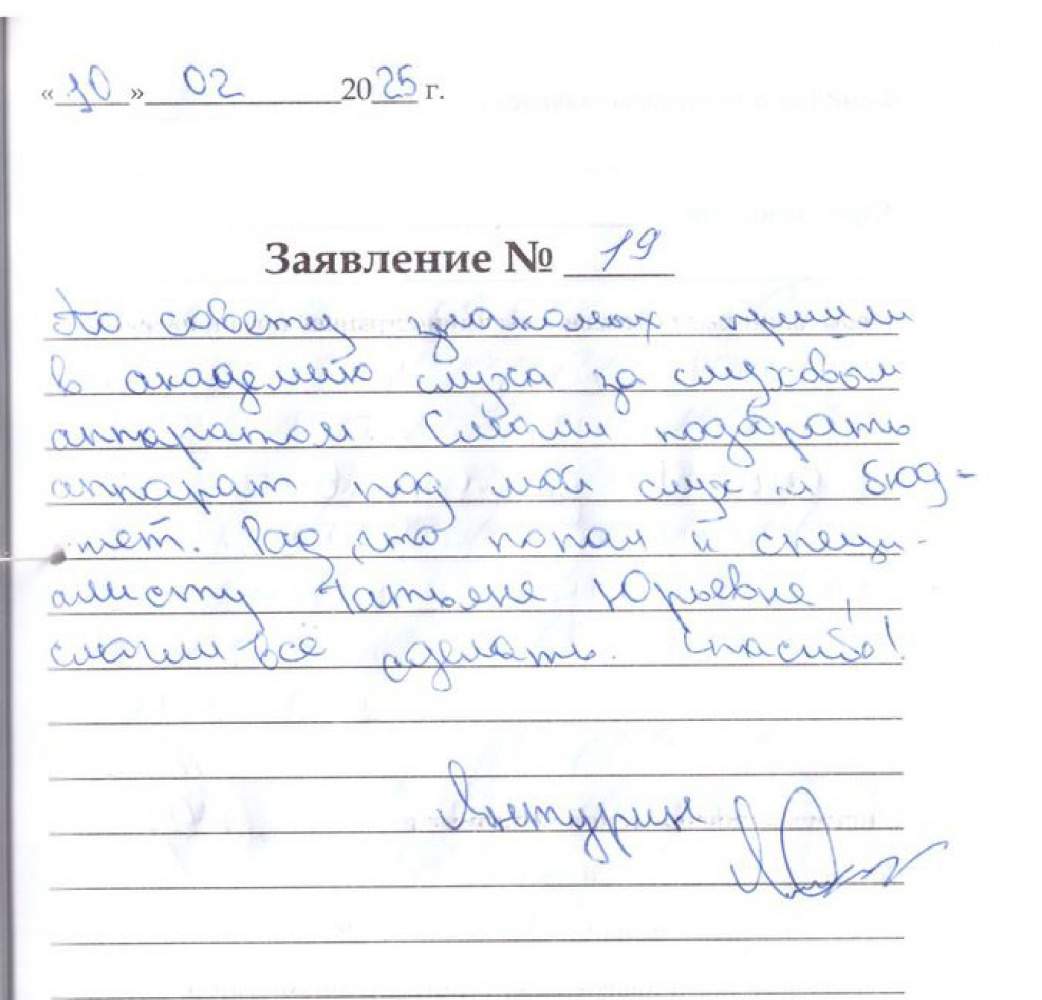 «10» 02 2025 г.
Заявление № 19
По совету знакомых пришли
в академию слуха за слуховым
аппаратом. Смогли подобрать
аппарат под мой слух и бюд-
жет. Рад, что попал к специ-
алисту Татьяне Юрьевне,
смогли всё сделать. Спасибо!